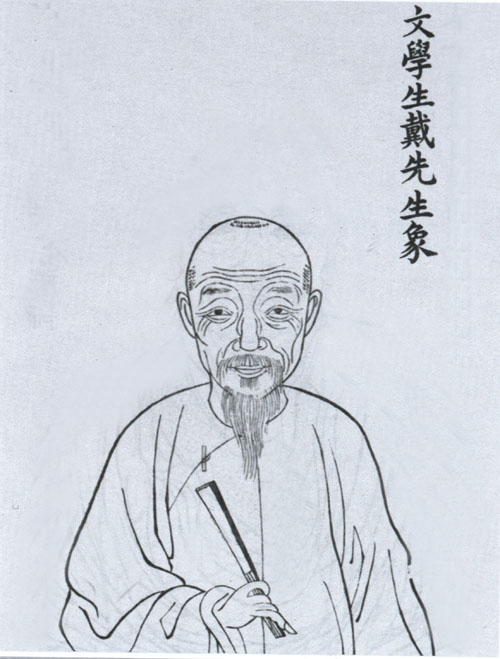 文學生戴先生象